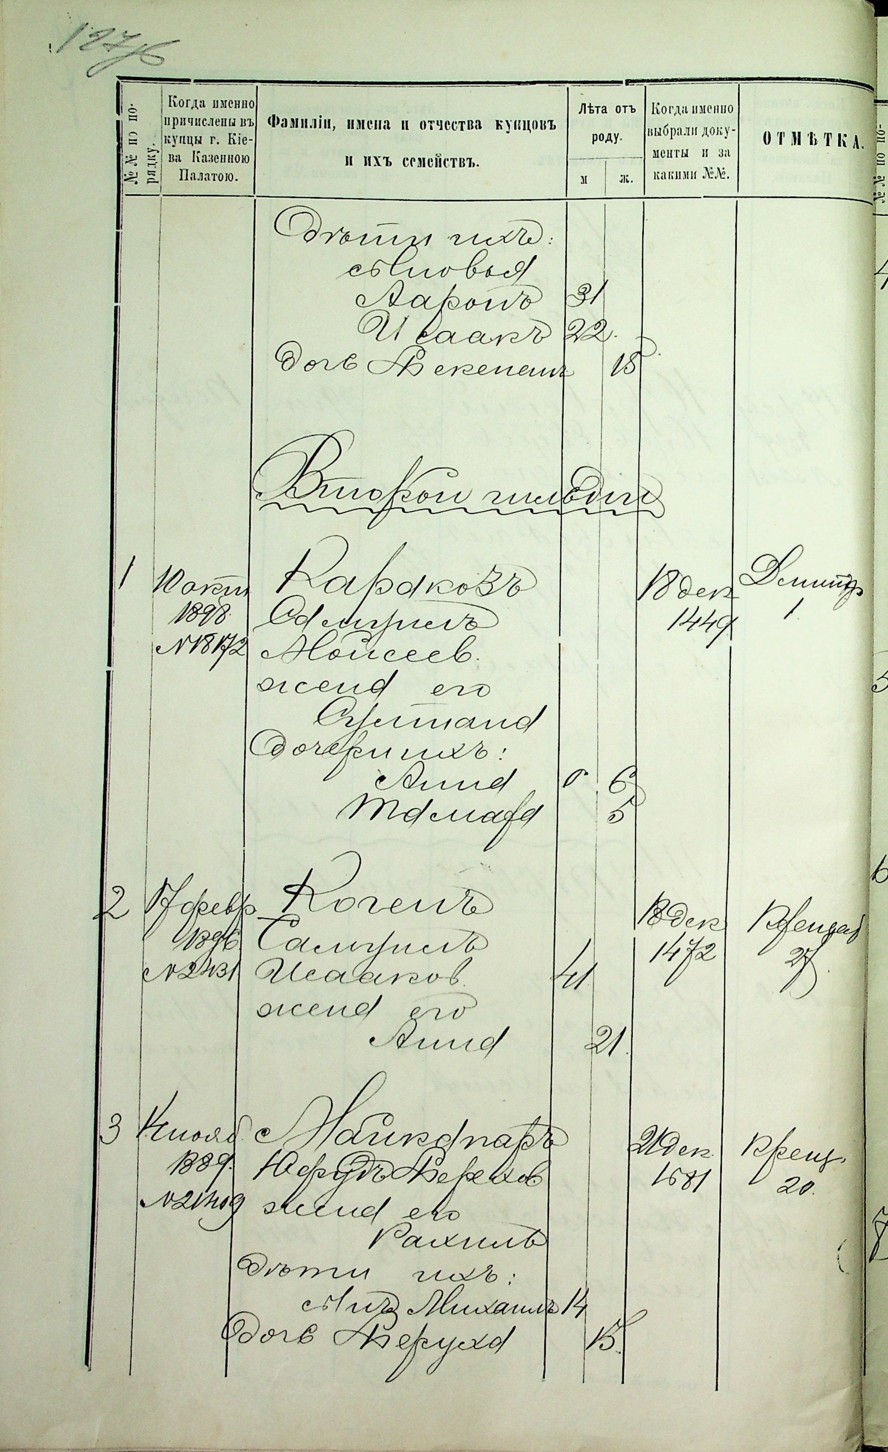 №№ по порядку.
Когда именно причислены въ купцы г. Кіева Казенною Палатою.
Фамиліи, имена и отчества купцовъ и ихъ семействъ.
Лѣта отъ роду.
м
ж.
Когда именно выбрали документы и за какими №№.
ОТМѢТКА.
Дѣти ихъ:
сыновья
Ааронъ 31
Исаакъ 22.
дочь 18
Второй гильдіи
1 10 окт. Каракозъ 18 дек
1898 Самуилъ 1449 1.
№18172 Моисеев.
жена его
Султана
дочери ихъ:
Анна 6
Тамара 5
2 17 февр Когенъ 18 дек
1896 Самуилъ 1472 27
№2431 Исааков. 41
жена его
Анна 21.
3 14 нояб. Майкапаръ 21 дек. Крещ.
1889. Юфудъ Берахов 1581 20.
№21409 жена его
Рахиль
Дѣти ихъ:
сынъ Михаилъ 14
дочь Беруха 15.